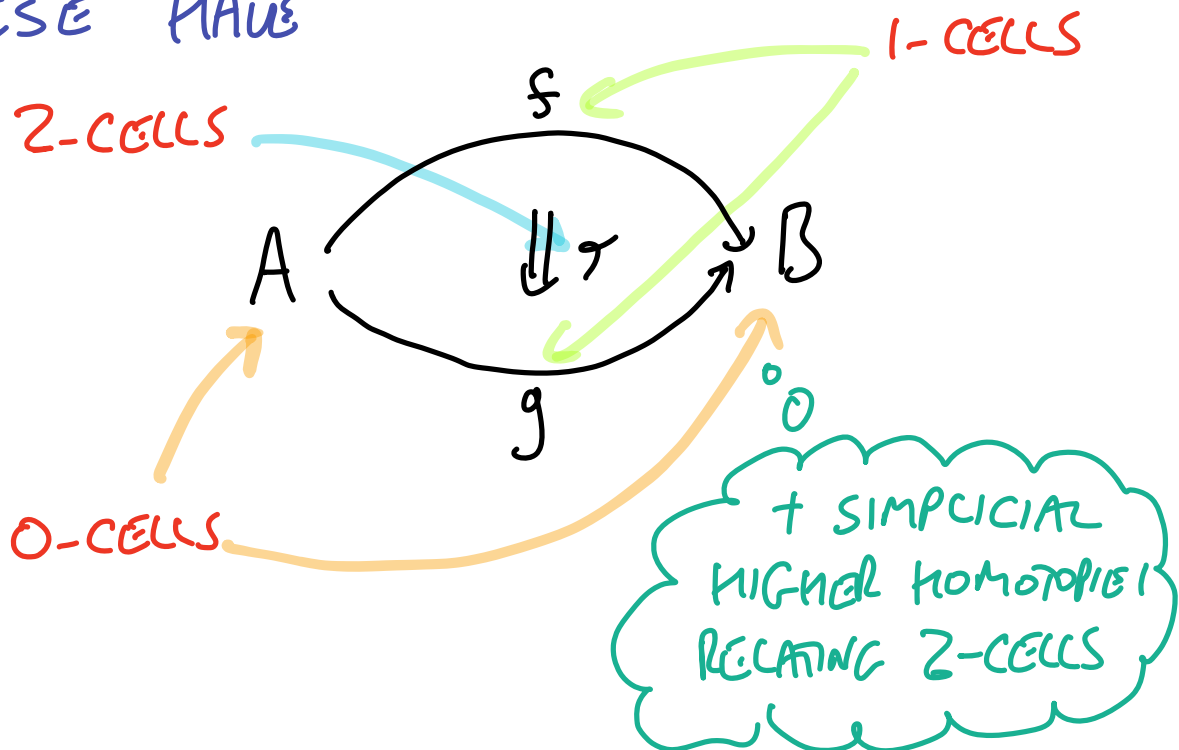 HAVE
1-CELLS
2-CELLS
f
A
B
g
0-CELLS
+ SIMPLICIAL
HIGHER HOMOTOPIES
RELATING 2-CELLS